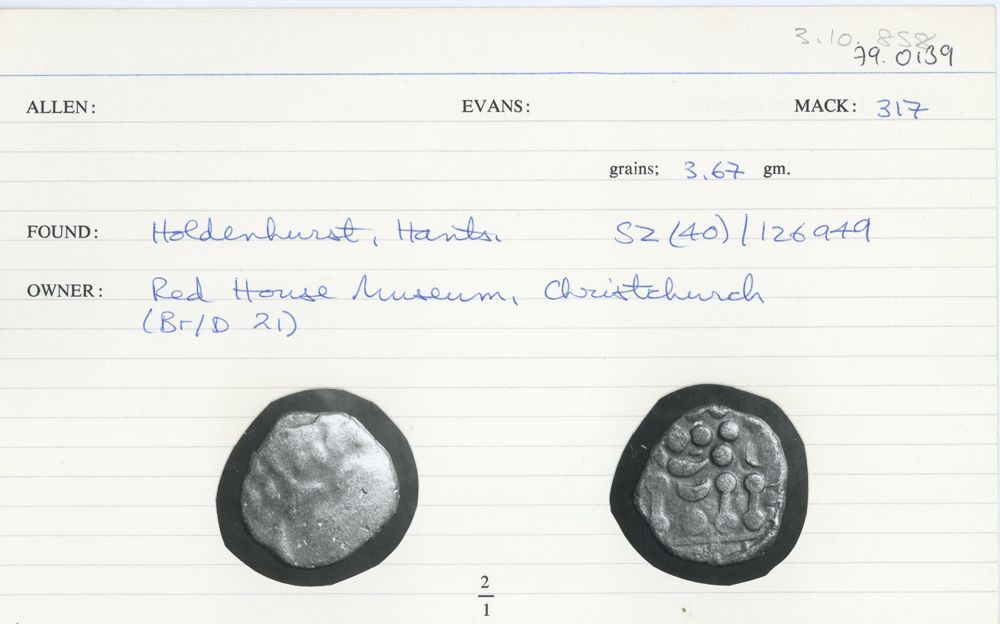 3.10.858
79.0139
ALLEN: EVANS: MACK: 317
grains; 3.67 gm.
FOUND: Holdenhurst, Hants. SZ (40) / 126949
OWNER: Red House Museum, Christchurch
(Br/D 21)
2
1